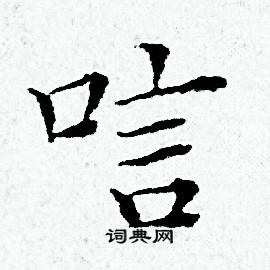 唁
词典网